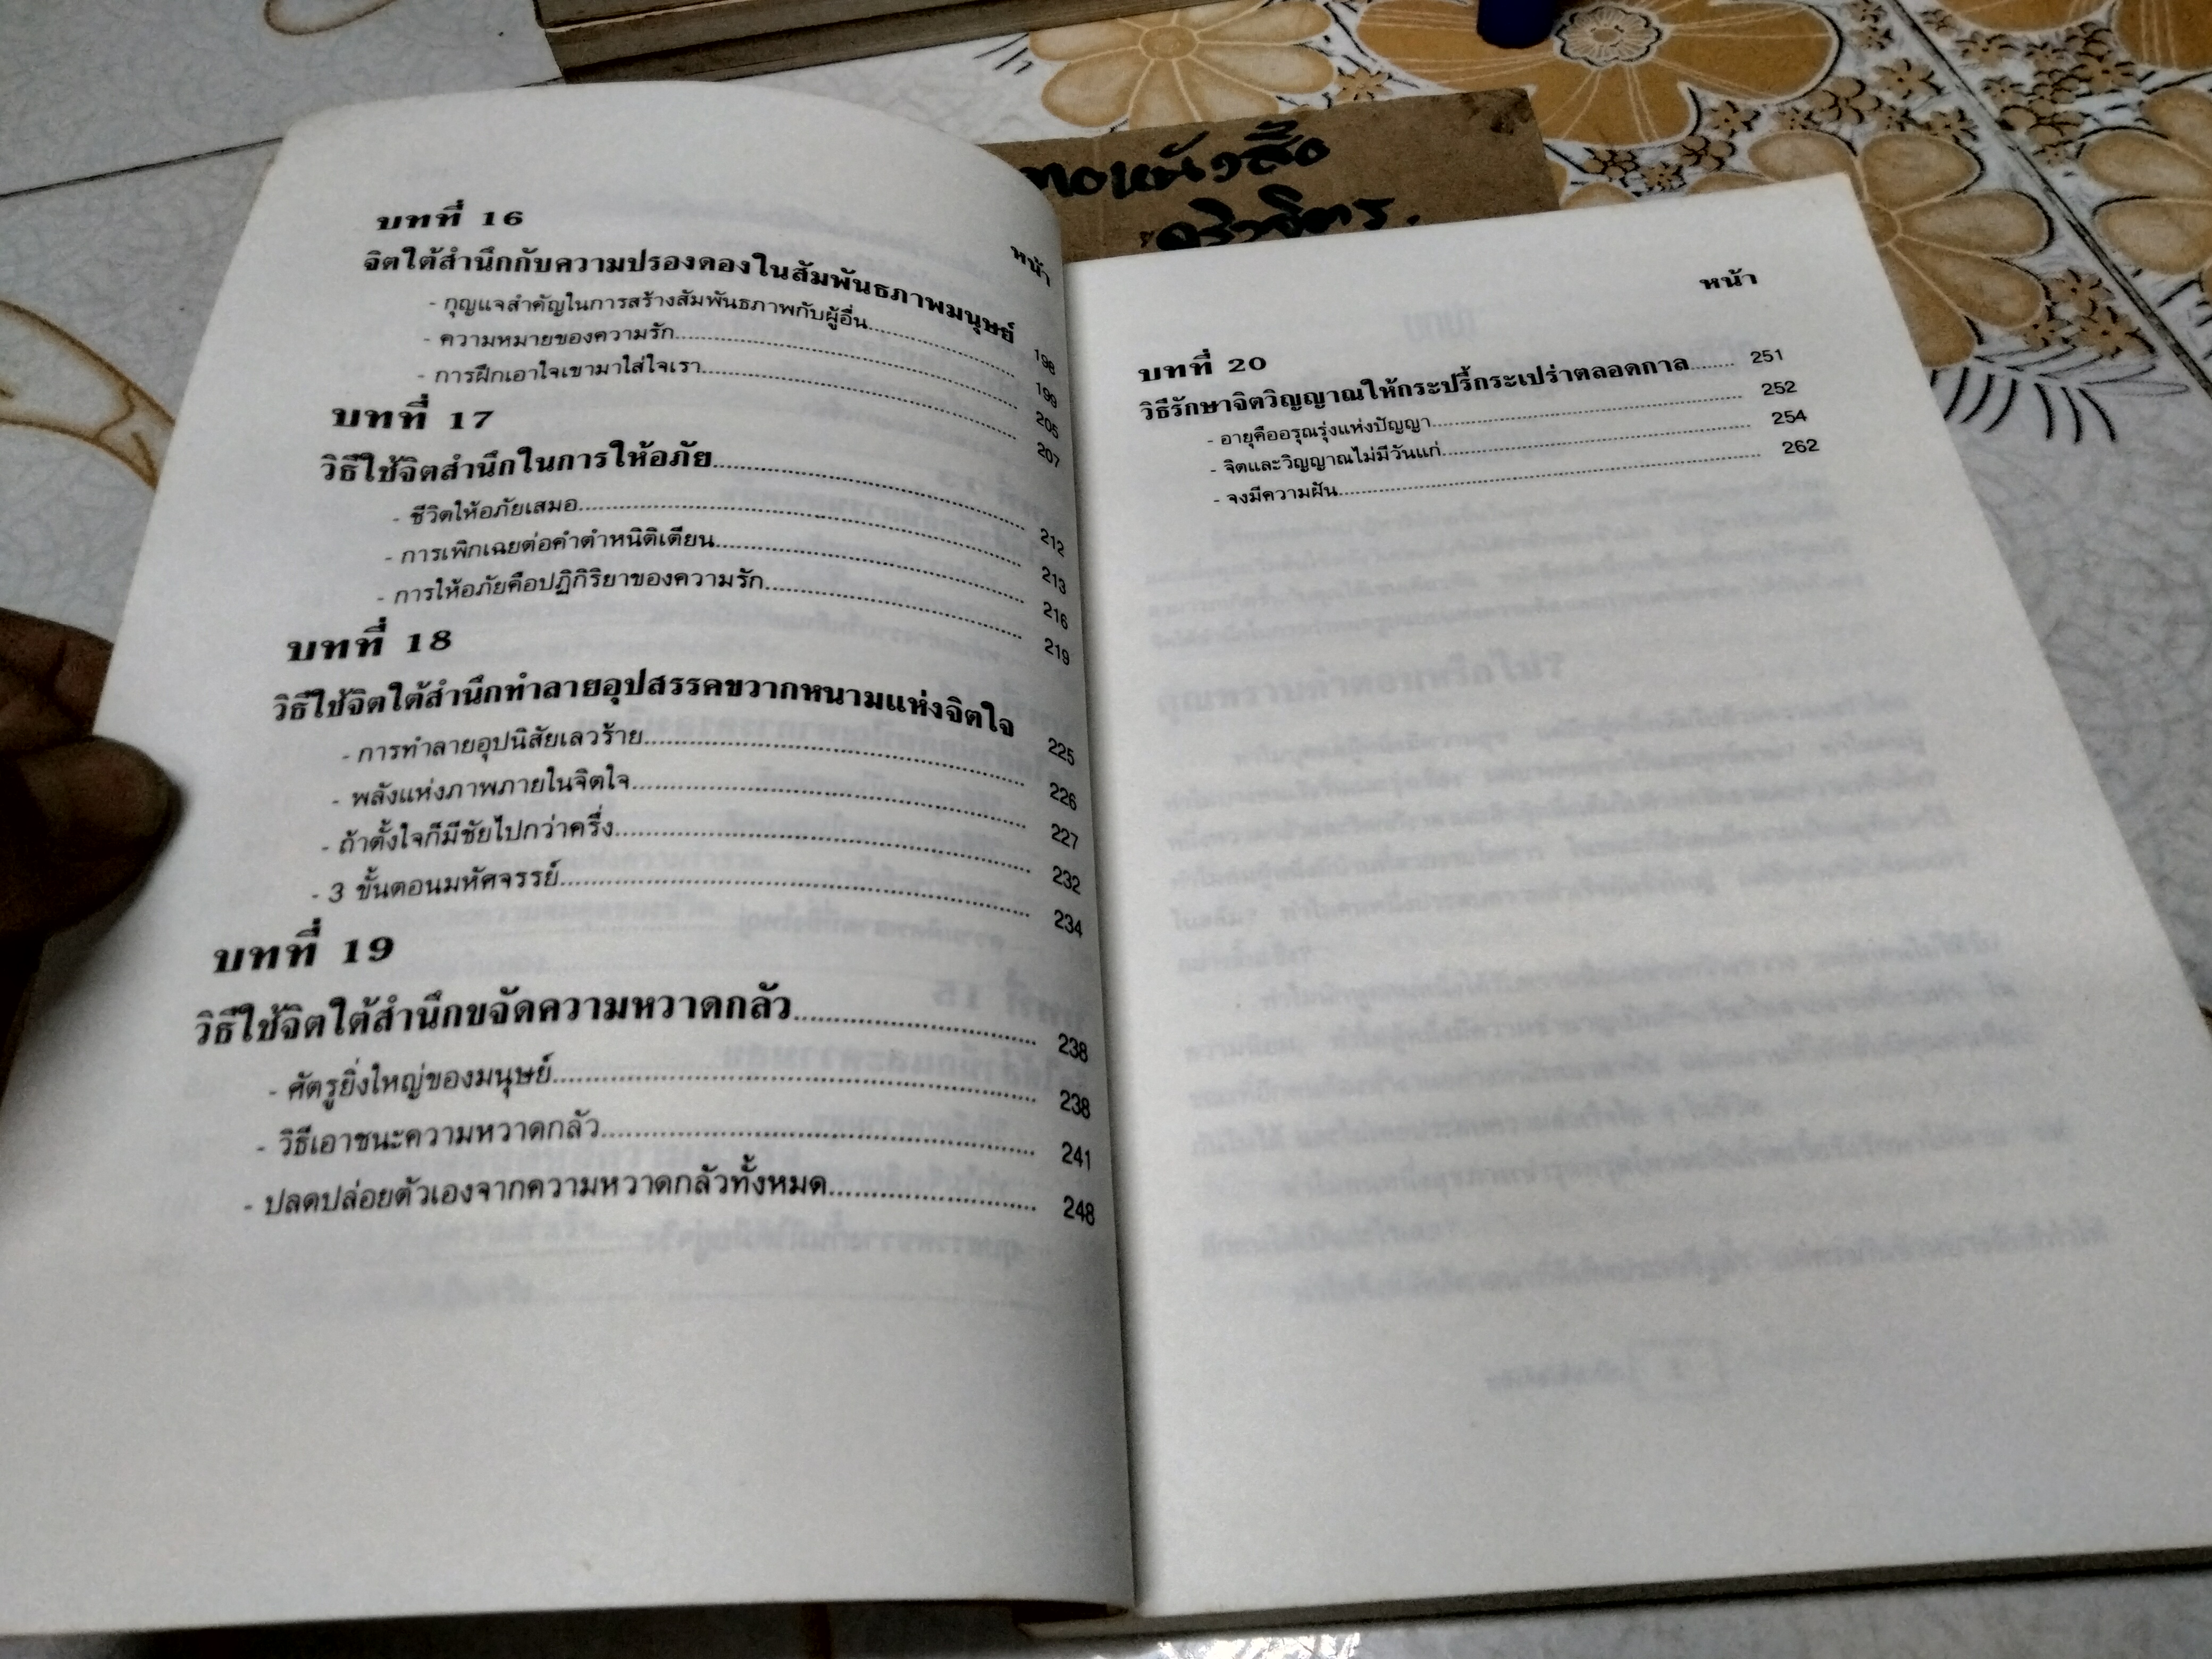 หน้า
บทที่ 16
จิตใต้สำนึกกับความปรองดองในสัมพันธภาพมนุษย์ 198
- กุญแจสำคัญในการสร้างสัมพันธภาพกับผู้อื่น........................ 199
- ความหมายของความรัก........................ 205
- การฝึกเอาใจเขามาใส่ใจเรา........................ 207
บทที่ 17
วิธีใช้จิตสำนึกในการให้อภัย........................ 212
- ชีวิตให้อภัยเสมอ........................ 213
- การเพิกเฉยต่อคำตำหนิติเตียน........................ 216
- การให้อภัยคือปฏิกิริยาของความรัก........................ 219
บทที่ 18
วิธีใช้จิตใต้สำนึกทำลายอุปสรรคขวากหนามแห่งจิตใจ 225
- การทำลายอุปนิสัยเลวร้าย........................ 226
- พลังแห่งภาพภายในจิตใจ........................ 227
- ถ้าตั้งใจก็มีชัยไปกว่าครึ่ง........................ 232
- 3 ขั้นตอนมหัศจรรย์........................ 234
บทที่ 19
วิธีใช้จิตใต้สำนึกขจัดความหวาดกลัว........................ 238
- ศัตรูยิ่งใหญ่ของมนุษย์........................ 238
- วิธีเอาชนะความหวาดกลัว........................ 241
- ปลดปล่อยตัวเองจากความหวาดกลัวทั้งหมด........................ 248
หน้า
บทที่ 20
วิธีรักษาจิตวิญญาณให้กระปรี้กระเปร่าตลอดกาล........ 251
- อายุคืออรุณรุ่งแห่งปัญญา........................ 252
- จิตและวิญญาณไม่มีวันแก่........................ 254
- จงมีความฝัน........................ 262